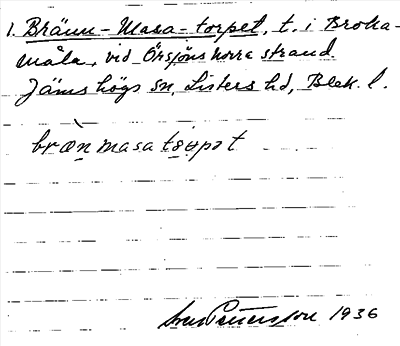 1. Bränn-Masa-torpet, t. i Broka-
måla, vid Örsjöns norra strand
Jämshögs sn, Listers hd, Blek. l.
brænmasatorpət
Pettersson 1936